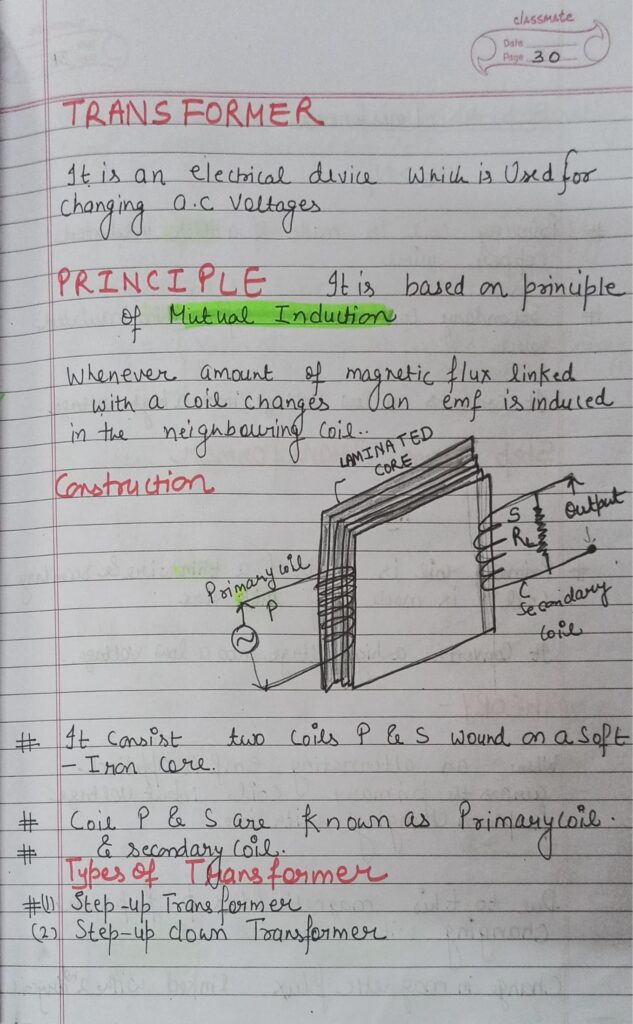 classmate
Date
Page 30
TRANSFORMER
It is an electrical device which is Used for
changing a.c voltages
PRINCIPLE It is based on principle
of Mutual Induction
Whenever amount of magnetic flux linked
with a coil changes an emf is induced
in the neighbouring coil..
LAMINATED
CORE
Construction
Primary coil
P
S
RL
Output
Secondary
coil
# It Consist two Coils P & S wound on a Soft
- Iron Core.
# Coil P & S are known as Primary coil.
# & secondary coil.
Types of Transformer
#(1) Step-up Transformer
(2) Step-up down Transformer